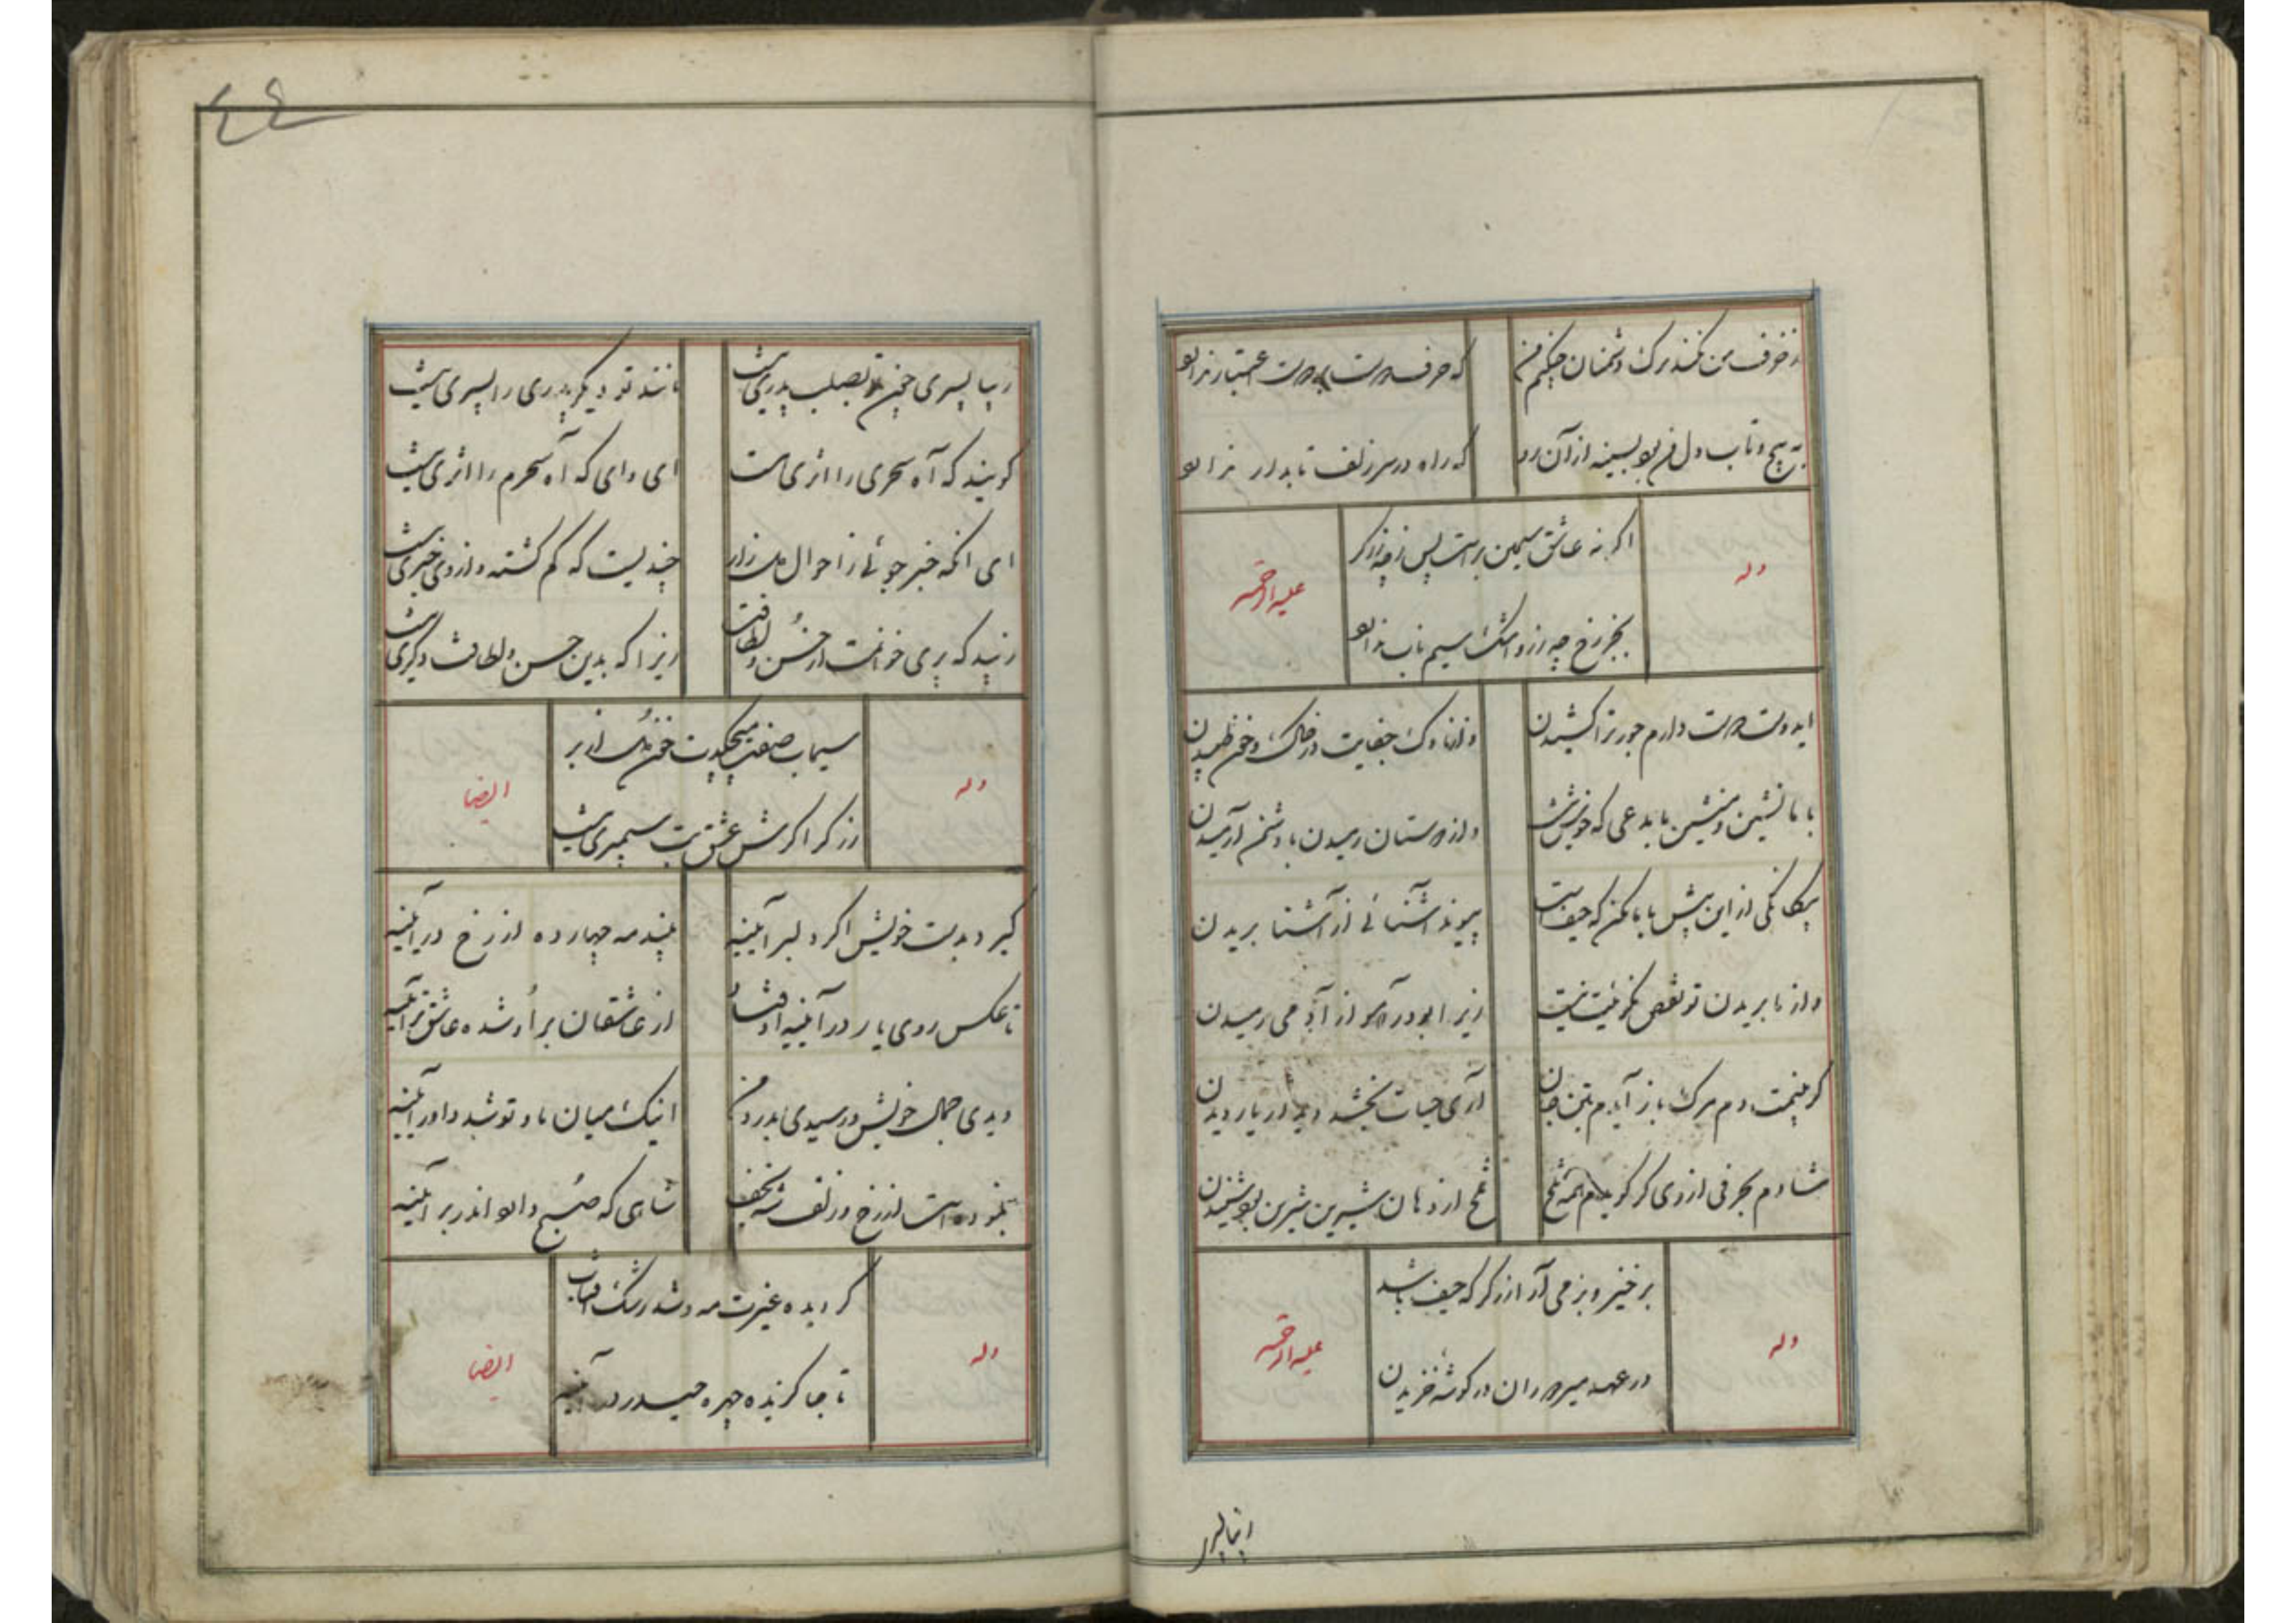 ز حرف من نکند ترک دشمنان چکنم من
که حرف دوست بر دوست اعتبار ندارد
به پیچ و تاب دل من بود بسینه از آن رو
که راه در سر زلف تابدار ندارد
وله
علیه الرحمه
اگر نه عاشق سیمین بر است پس ز چه زرگر
بجز رخ چه زر و اشک سیم ناب ندارد
ایدوست دوست دارم جور ترا کشیدن
وز ناوک جفایت در خاک و خون طپیدن
با ما نشین و منشین با مدعی که خوش نیست
و از دوستان رمیدن با دشمن آرمیدن
بیگانگی از این بیش با ما مکن که حیف است
پیوند آشنائی از آشنا بریدن
و از ما بریدن تو نقص مکرمیت نیست
زیرا بود در آهو از آدمی رمیدن
گر بینمت دم مرگ باز آیدم بتن جان
آری حیات بخشد دیدار یار دیدن
شادم بحرفی از وی گر گویدم همه تلخ
تلخ از دهان شیرین شیرین بود شنیدن
وله
علیه الرحمه
برخیز و بزمی آرا زرگر که حیف باشد
در عهد میر دوران در گوشه خزیدن
زیبا پسری چون تو بصلب پدری نیست
مانند تو دیگر پدری را پسری نیست
گویند که آه سحری را اثری هست
ای وای که آه سحرم را اثری نیست
ای آنکه خبر جوئی ز احوال دل زار
چندیست که گم گشته و از وی خبری نیست
زیبد که پری خوانمت از حسن و لطافت
زیرا که بدین حسن و لطافت دگری نیست
وله
ایضا
سیماب صفت میچکدت خون دل از بر
زرگر اگرش عشق بت سیمبری نیست
گیرد بدست خویش اگر دلبر آینه
بیند مه چهارده از رخ در آینه
تا عکس روی یار در آینه اوفتاد
از عاشقان بر او شده عاشق‌تر آینه
دیدی جمال خویش و رسیدی بدرد من
اینک میان ما و تو شد داور آینه
بنموده است از رخ و زلف شه نجف
شاهی که صبح دارد اندر بر آینه
وله
ایضا
گردیده غیرت مه و شد رشک آفتاب
تا جا گزیده چهره حیدر در آینه
زیبا پسر